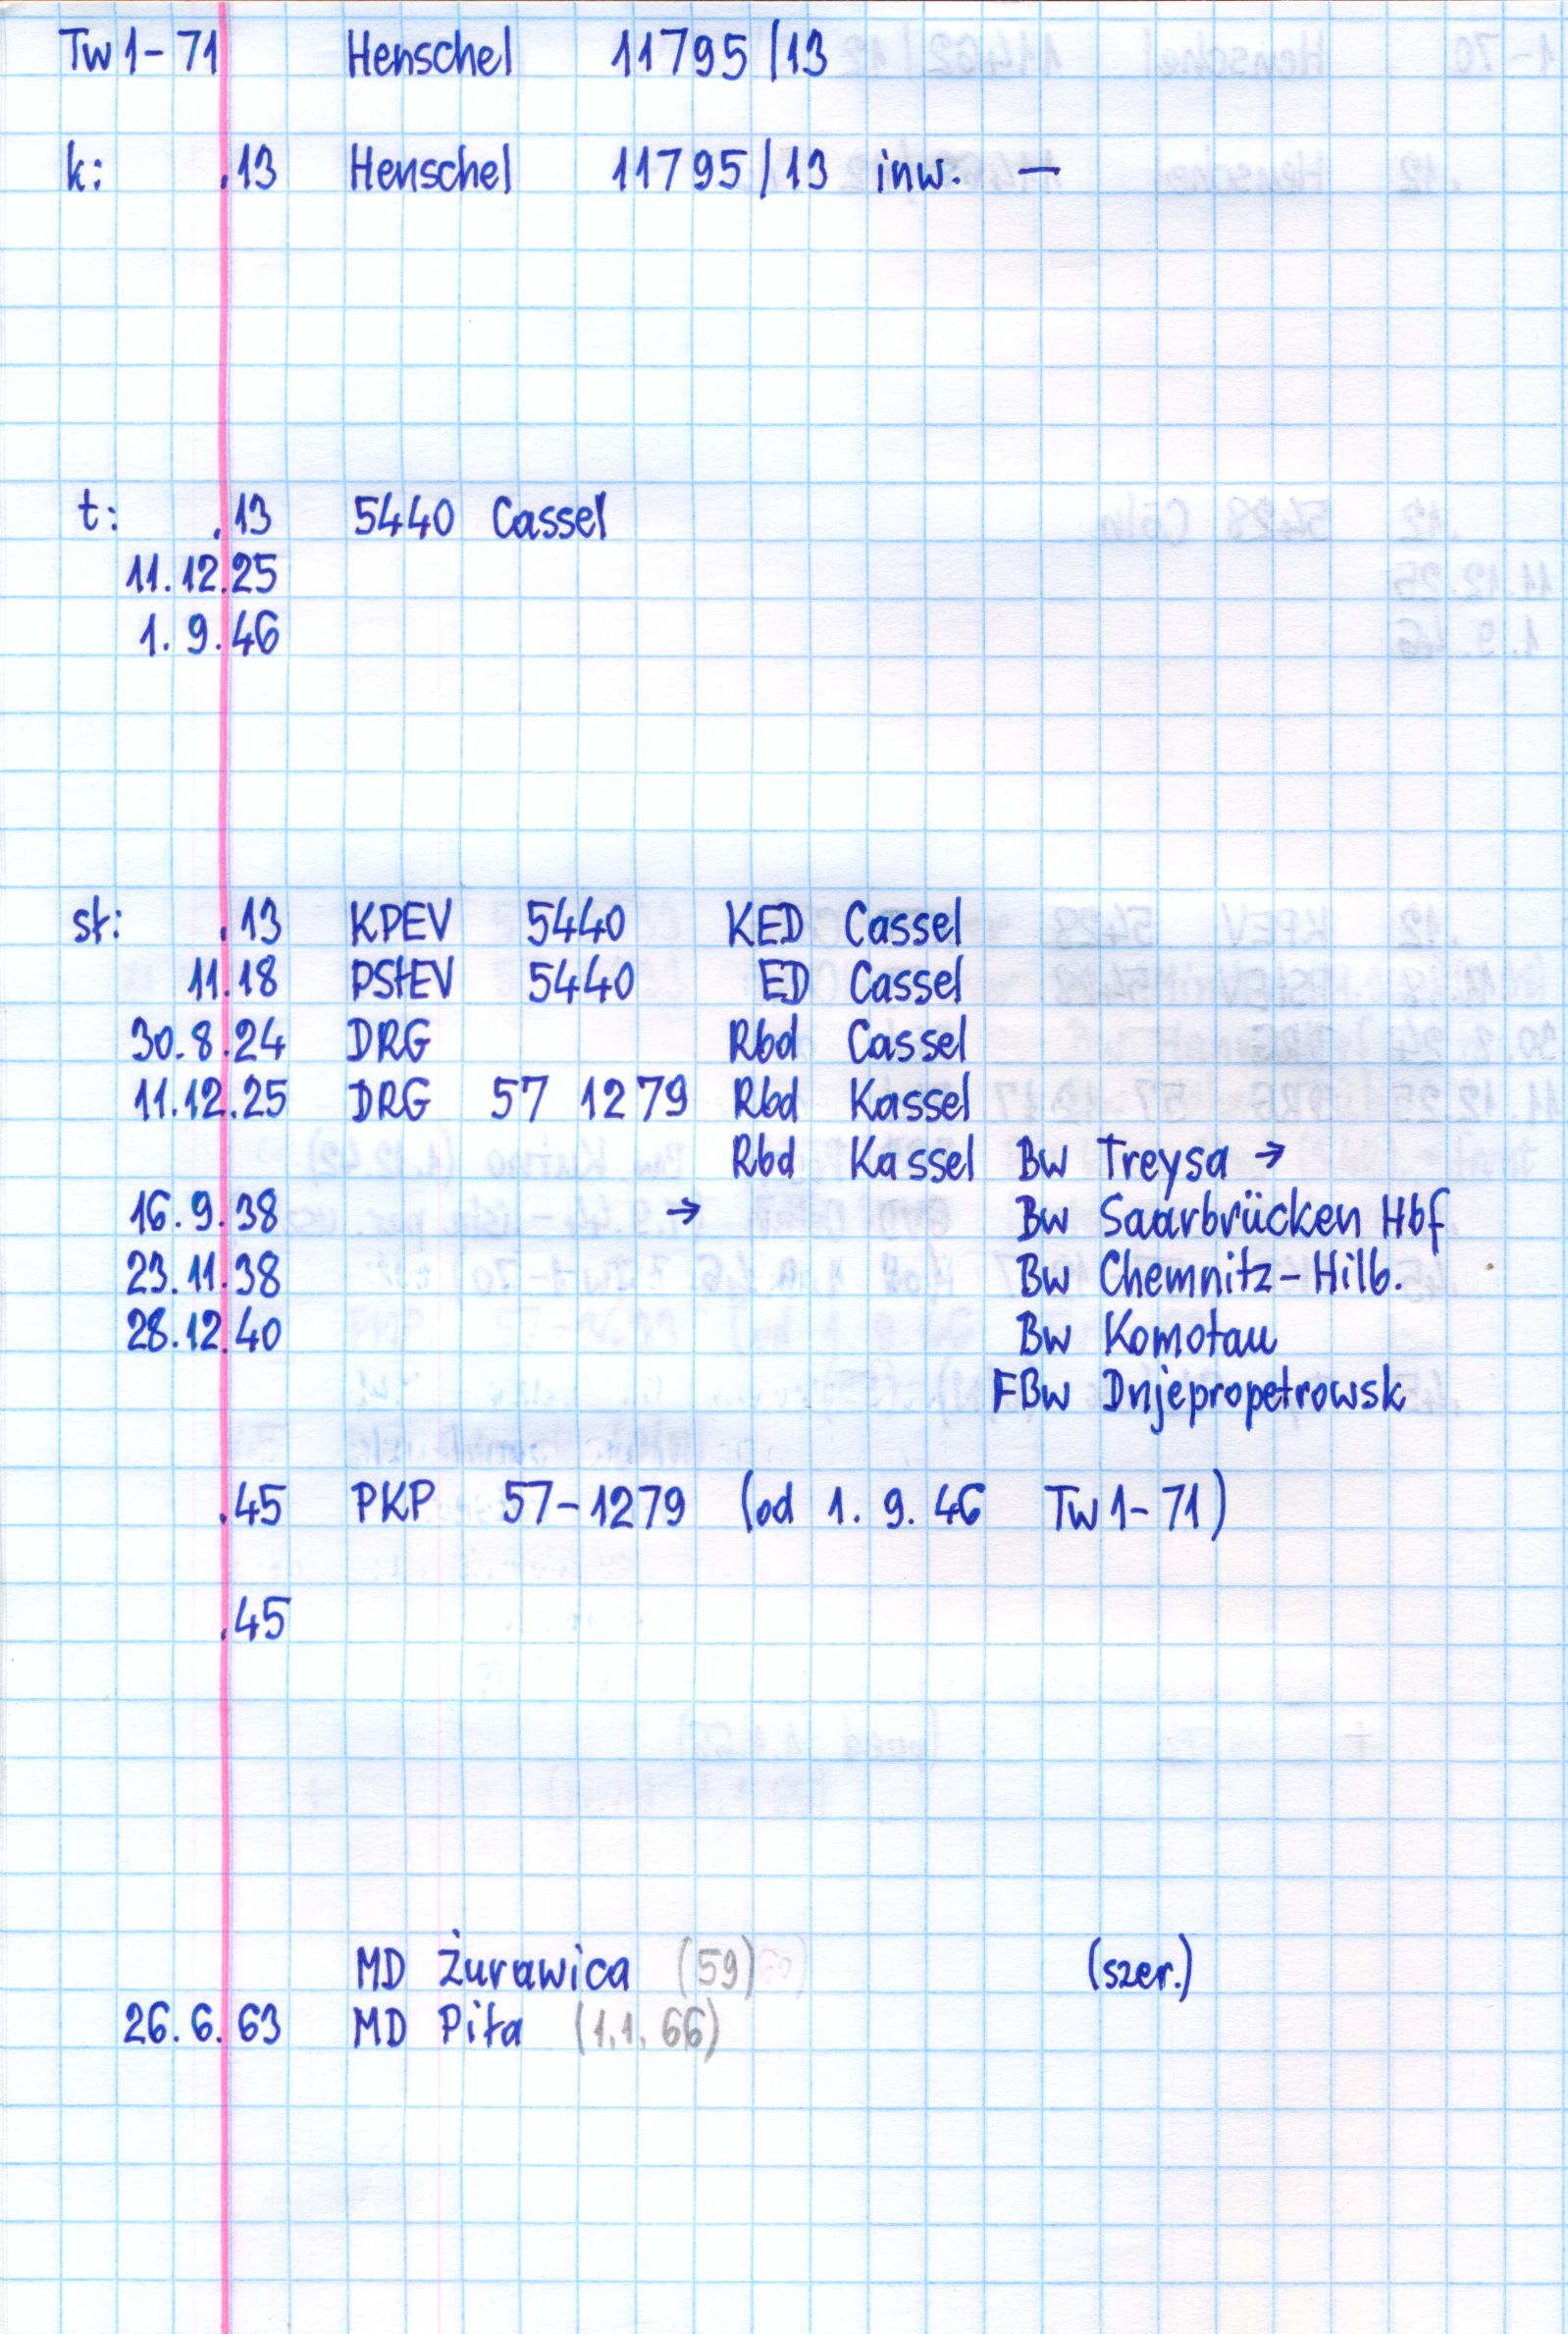 Tw 1-71 Henschel 11795/13
k: .13 Henschel 11795/13 inw. —
t: .13 5440 Cassel
11.12.25
1.9.46
st: .13 KPEV 5440 KED Cassel
11.18 PStEV 5440 ED Cassel
30.8.24 DRG Rbd Cassel
11.12.25 DRG 57 1279 Rbd Kassel
Rbd Kassel Bw Treysa →
16.9.38 → Bw Saarbrücken Hbf
23.11.38 Bw Chemnitz-Hilb.
28.12.40 Bw Komotau
FBw Dnjepropetrowsk
.45 PKP 57-1279 (od 1.9.46 Tw 1-71)
.45
MD Żurawica (59) (szer.)
26.6.63 MD Piła (1.1.66)